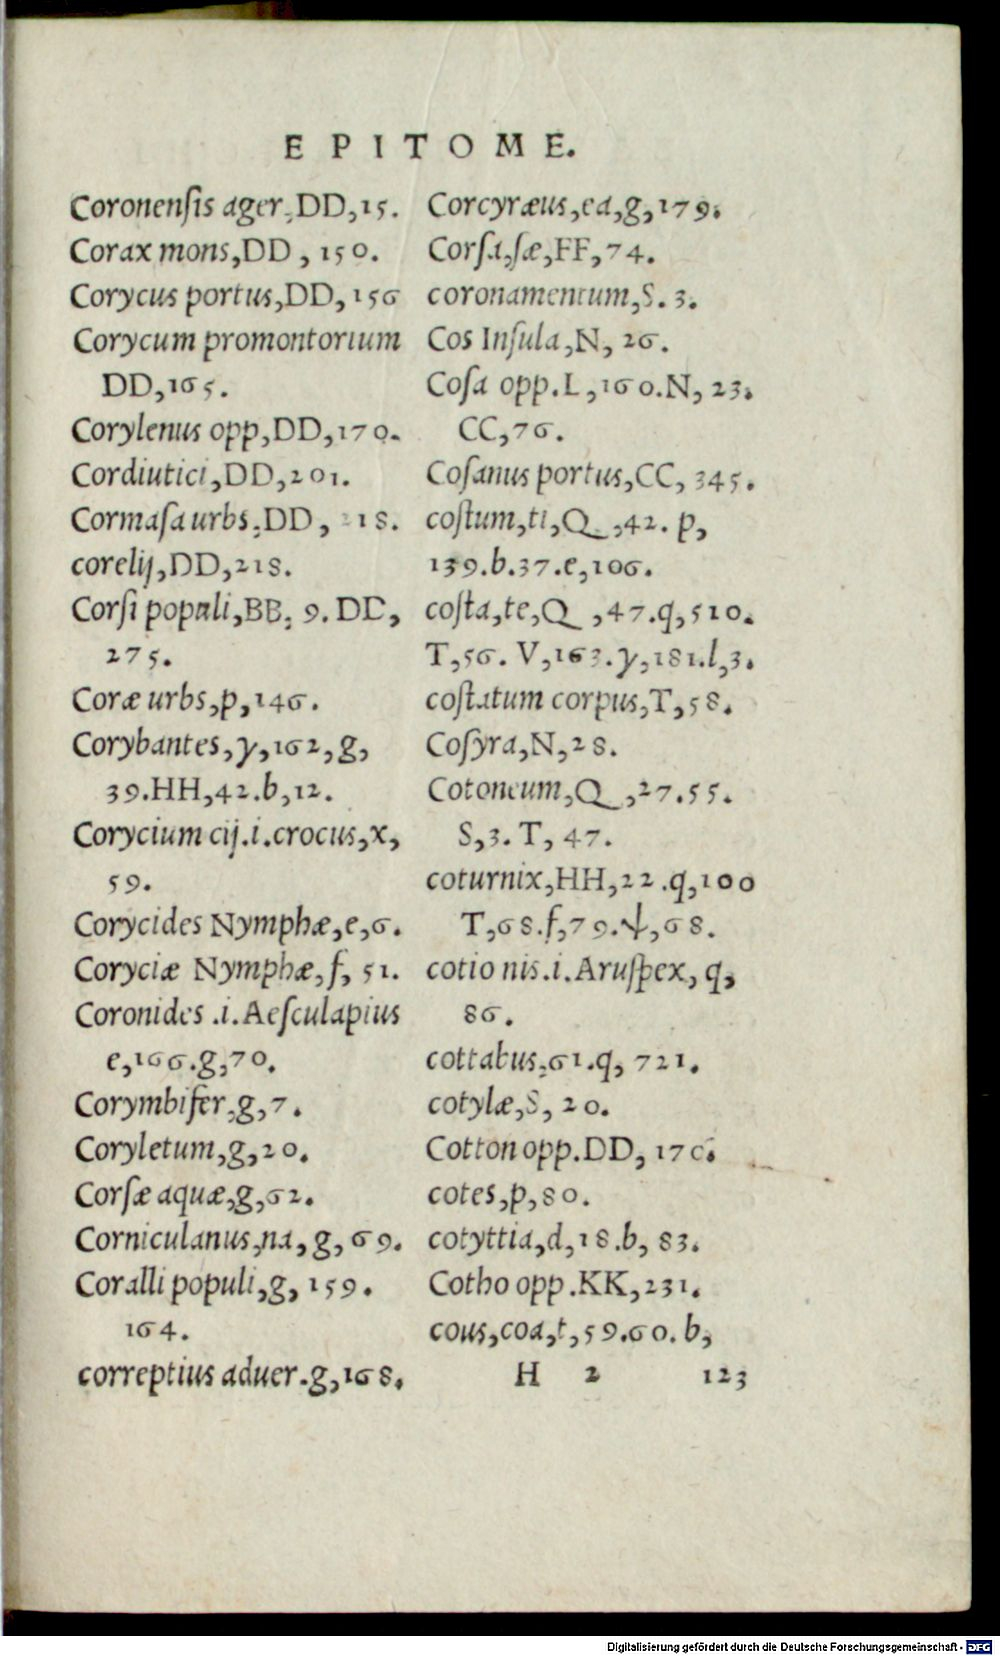 EPITOME.
Coronenſis ager,DD,15.
Corax mons,DD, 150.
Corycus portus,DD,156
Corycum promontorium
DD,165.
Corylenus opp,DD,170.
Cordiutici,DD,201.
Cormaſa urbs,DD, 218.
corelij,DD,218.
Corſi populi,BB, 9. DD,
275.
Coræ urbs,p,146.
Corybantes,y,162,g,
39.HH,42.b,12.
Corycium cij.i.crocus,x,
59.
Corycides Nymphæ,e,6.
Coryciæ Nymphæ,f, 51.
Coronides .i.Aeſculapius
e,166.g,70.
Corymbifer,g,7.
Coryletum,g,20.
Corſæ aquæ,g,62.
Corniculanus,na,g,69.
Coralli populi,g, 159.
164.
correptius aduer.g,168.
Corcyræus,ea,g,179.
Corſa,ſæ,FF,74.
coronamentum,S.3.
Cos Inſula,N, 26.
Coſa opp.L,160.N, 23.
CC,76.
Coſanus portus,CC, 345.
coſtum,ti,Q,42. p,
139.b.37.e,106.
coſta,te,Q,47.q,510.
T,56. V,163.y,181.l,3.
coſtatum corpus,T,58.
Coſyra,N,28.
Cotoneum,Q,27.55.
S,3. T, 47.
coturnix,HH,22.q,100
T,68.f,79.ψ,68.
cotio nis.i.Aruſpex, q,
86.
cottabus,61.q, 721.
cotylæ,S, 20.
Cotton opp.DD, 170.
cotes,p,80.
cotyttia,d,18.b, 83.
Cotho opp.KK,231.
cous,coa,t,59.60. b,
H 2 123
Digitalisierung gefördert durch die Deutsche Forschungsgemeinschaft - DFG